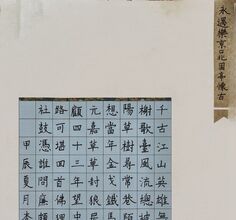 永遇樂 京口北固亭懷古
千古江山英雄無
榭歌臺風流總被
陽草樹尋常巷陌
想當年金戈鐵馬
元嘉草草封狼居
顧四十三年望中
路可堪回首佛狸
社鼓憑誰問廉頗
甲辰夏月